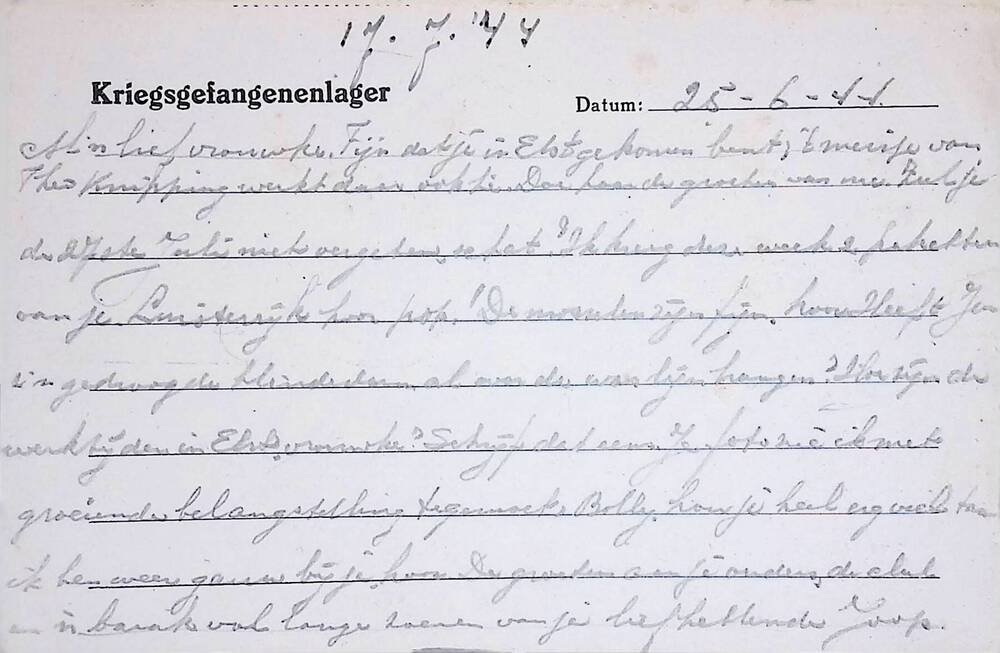 17.7.'44
Kriegsgefangenenlager
Datum: 25-6-44.
M'n lief vrouwke. Fijn dat je in Elst gekomen bent; 't meisje van
Theo Knipping werkt daar ook. Doe haar de groeten van me. Zul je
de 27ste Juli niet vergeten, schat? Ik kreeg deze week 2 paketten
van je. Luisterrijk hoor pop! De mosselen zijn fijn, hoor. Heeft
'n gedroogde blinde al aan de waslijn hangen? Hoe zijn de
werktijden in Elst, vrouwke? Schrijf dat eens. Je foto zie ik met
groeiende belangstelling tegemoet. Bolly, hou je heel erg veel taai
ik ben weer gauw bij je, hoor. De groeten aan je ouders, de club
en 'n barak vol lange zoenen van je liefhebbende Joop.